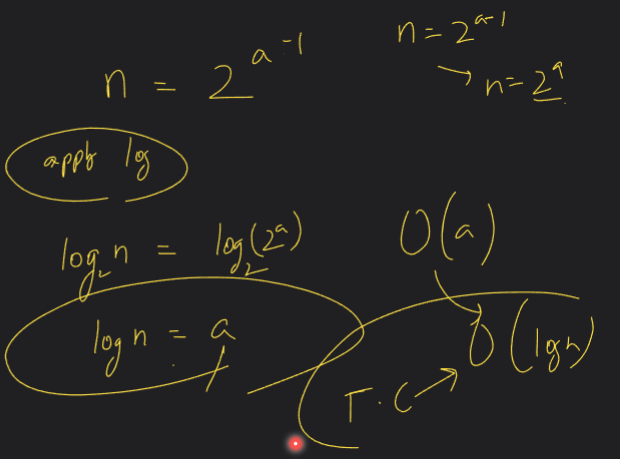 n = 2^{a-1}
n = 2^{a-1}
→ n = 2^a
apply log
log₂n = log₂(2^a)
O(a)
log n = a
O(log n)
T.C →